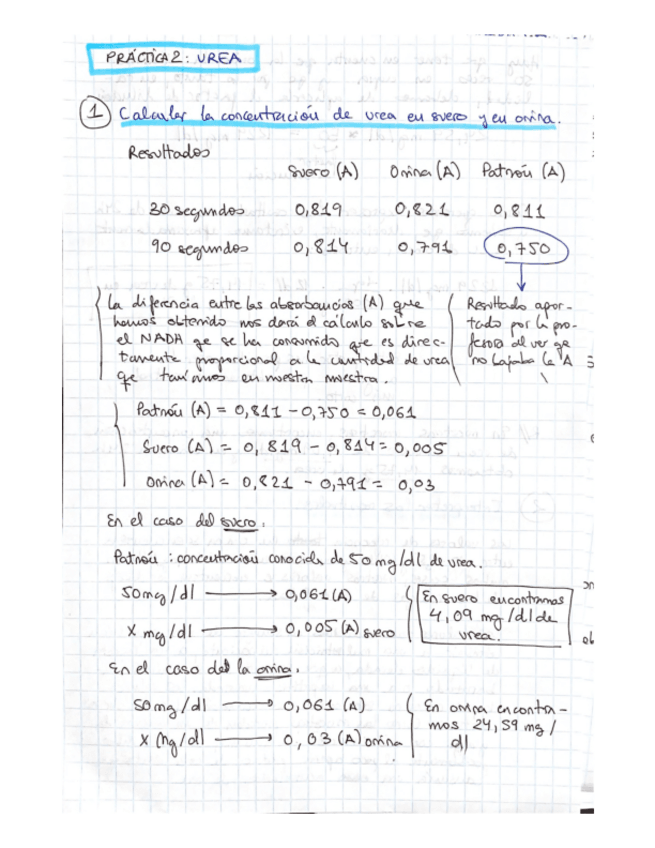 PRÁCTICA 2: UREA
1 Calcular la concentración de urea en suero y en orina.
Resultados
Suero (A) Orina (A) Patrón (A)
30 segundos 0,819 0,821 0,811
90 segundos 0,814 0,791 0,750
La diferencia entre las absorbancias (A) que
hemos obtenido nos dará el cálculo sobre
el NADH qe se ha consumido que es direc-
tamente proporcional a la cantidad de urea
qe teníamos en nuestra muestra.
Resultado apor-
tado por la pro-
fesora al ver qe
no bajaba la A
Patrón (A) = 0,811 - 0,750 = 0,061
Suero (A) = 0,819 - 0,814 = 0,005
Orina (A) = 0,821 - 0,791 = 0,03
En el caso del suero.
Patrón : concentración conocida de 50 mg/dl de urea.
50mg/dl → 0,061 (A)
X mg/dl → 0,005 (A) suero
En suero encontramos
4,09 mg/dl de
urea.
En el caso del la orina.
50mg/dl → 0,061 (A)
X mg/dl → 0,03 (A) orina
En orina encontra-
mos 24,59 mg/
dl